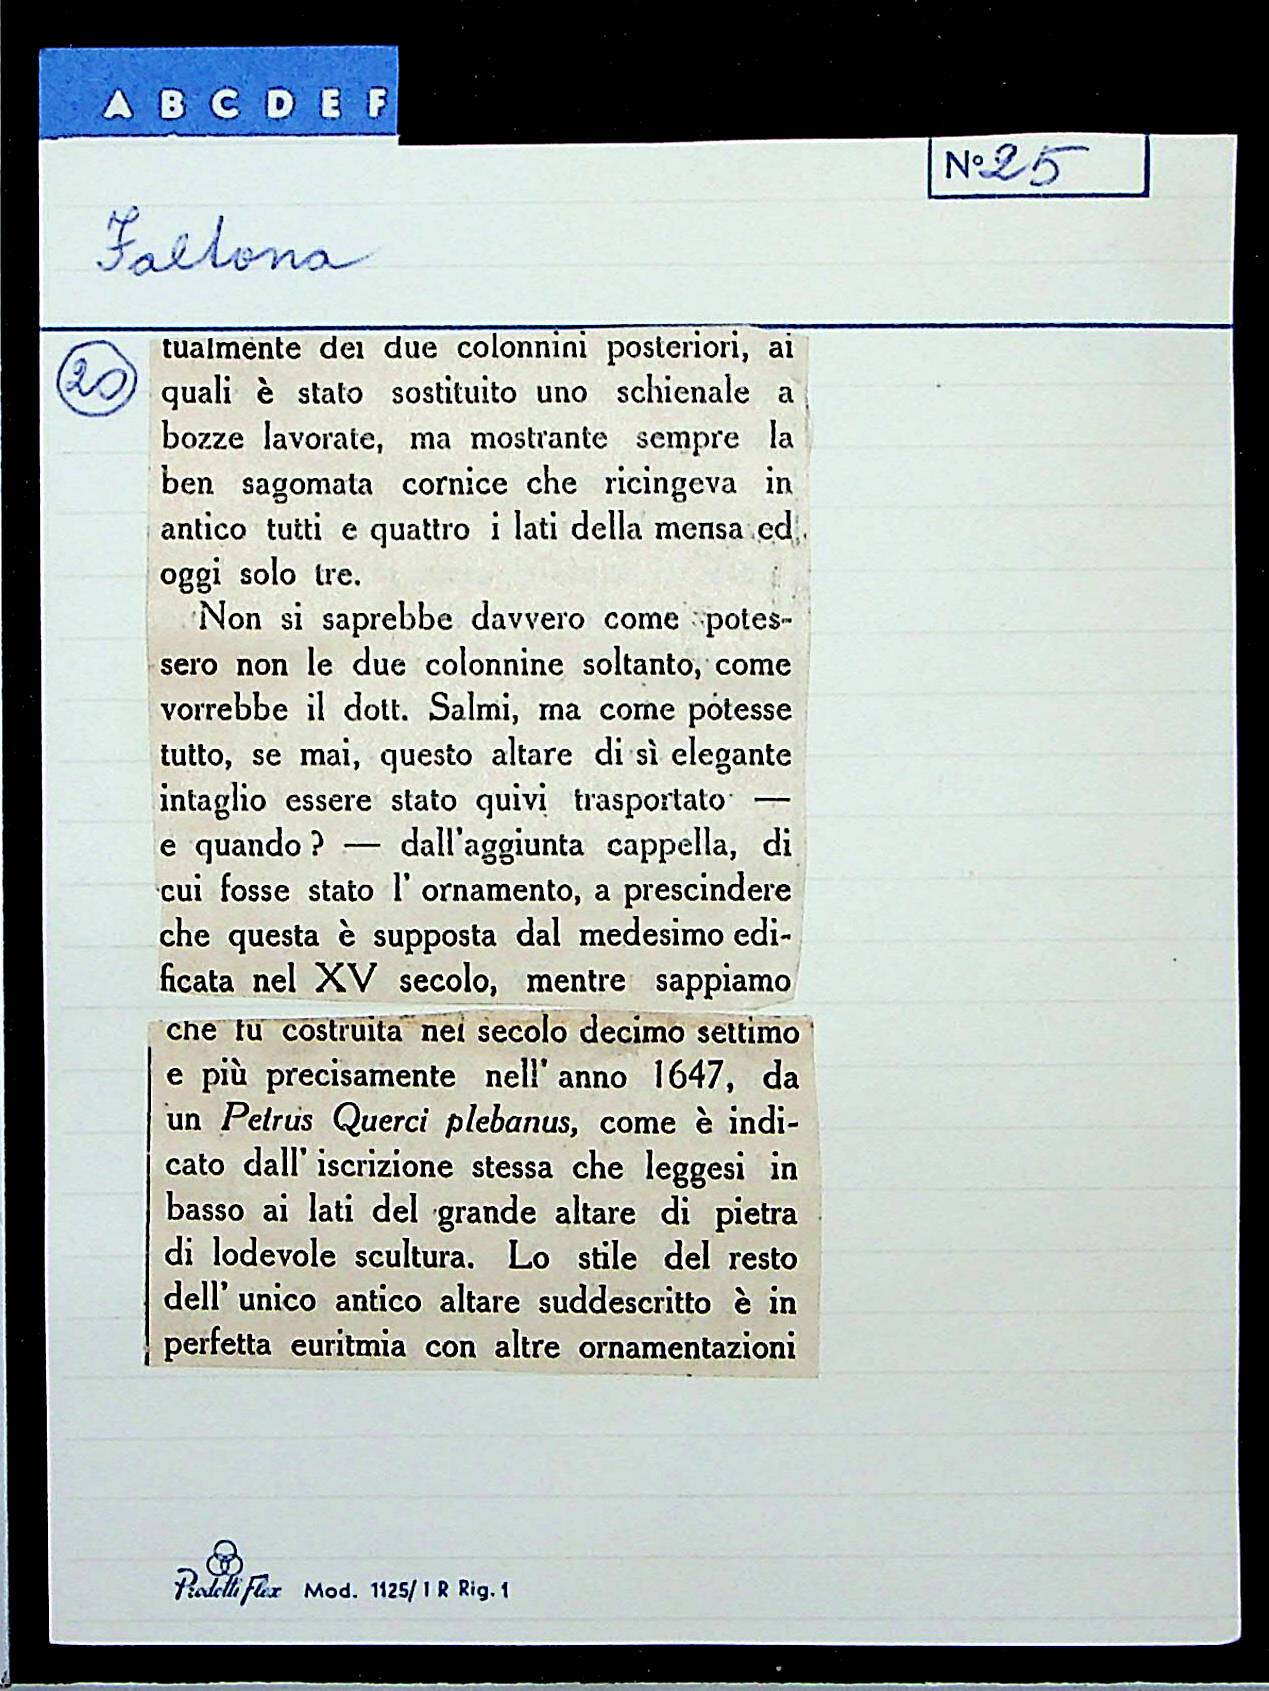 A B C D E F
N° 25
Faltona
20
tualmente dei due colonnini posteriori, ai
quali è stato sostituito uno schienale a
bozze lavorate, ma mostrante sempre la
ben sagomata cornice che ricingeva in
antico tutti e quattro i lati della mensa ed
oggi solo tre.
Non si saprebbe davvero come potes-
sero non le due colonnine soltanto, come
vorrebbe il dott. Salmi, ma come potesse
tutto, se mai, questo altare di sì elegante
intaglio essere stato quivi trasportato —
e quando? — dall'aggiunta cappella, di
cui fosse stato l' ornamento, a prescindere
che questa è supposta dal medesimo edi-
ficata nel XV secolo, mentre sappiamo
che fu costruita nel secolo decimo settimo
e più precisamente nell' anno 1647, da
un Petrus Querci plebanus, come è indi-
cato dall' iscrizione stessa che leggesi in
basso ai lati del grande altare di pietra
di lodevole scultura. Lo stile del resto
dell' unico antico altare suddescritto è in
perfetta euritmia con altre ornamentazioni
Flex Mod. 1125/1 R Rig. 1